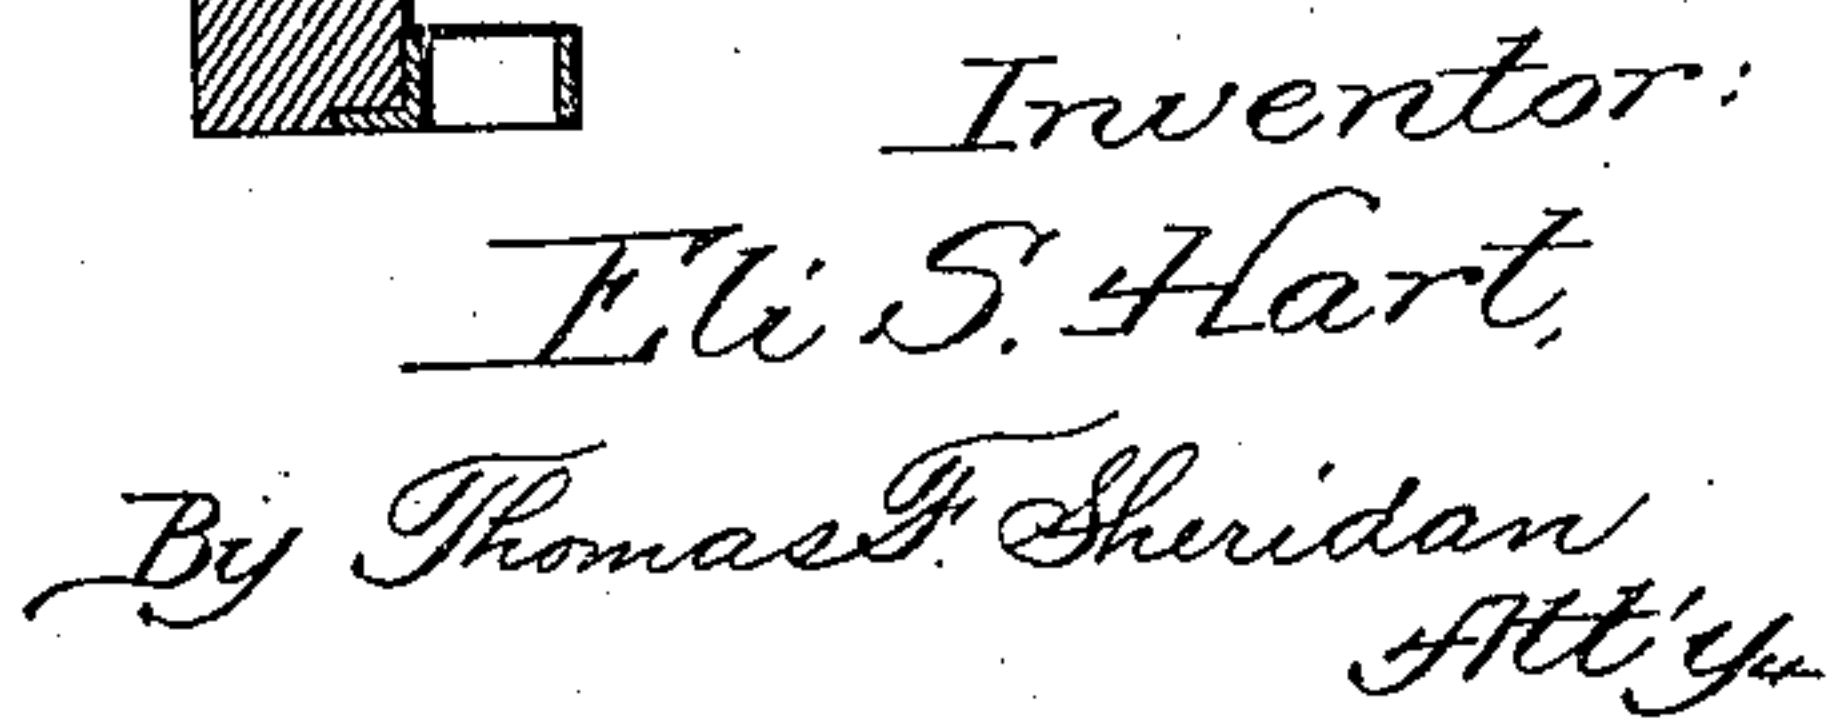 Inventor:
Eli S. Hart,
By Thomas F. Sheridan
Att'y